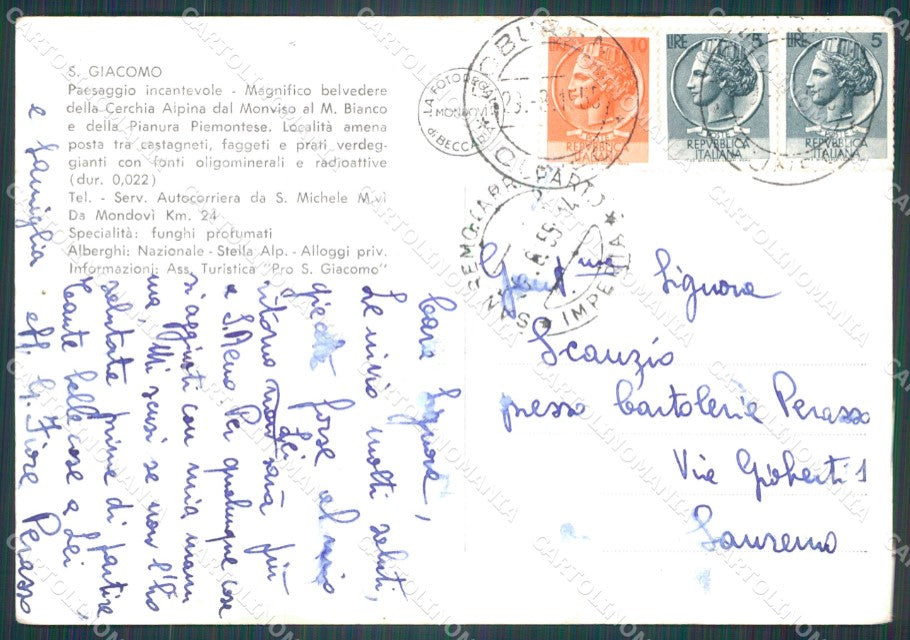 S. GIACOMO
Paesaggio incantevole - Magnifico belvedere
della Cerchia Alpina dal Monviso al M. Bianco
e della Pianura Piemontese. Località amena
posta tra castagneti, faggeti e prati verdeg-
gianti con fonti oligominerali e radioattive
(dur. 0,022)
Tel. - Serv. Autocorriera da S. Michele M.vì
Da Mondovì Km. 24
Specialità: funghi profumati
Alberghi: Nazionale - Stella Alp. - Alloggi priv.
Informazioni: Ass. Turistica "Pro S. Giacomo"
MONDOVÌ
di BECCARIA
10
REPVBBLICA
ITALIANA
LIRE 5
REPVBBLICA
ITALIANA
LIRE 5
REPVBBLICA
ITALIANA
SAN REMO
IMPERIA
Gent.ma Signora
Scanzio
presso Cartolerie Perasso
Via Gioberti 1
Sanremo
Cara Signora,
Le invio molti saluti,
giacché forse al mio
ritorno Lei non sarà più
a S.Remo. Per qualunque cosa
si aggiusti con mia mam
ma. Mi scusi se non l'ho
salutata prima di partire
Tante belle cose a Lei
e famiglia aff. G. Fiore Perasso
CARTOLINOMANIA